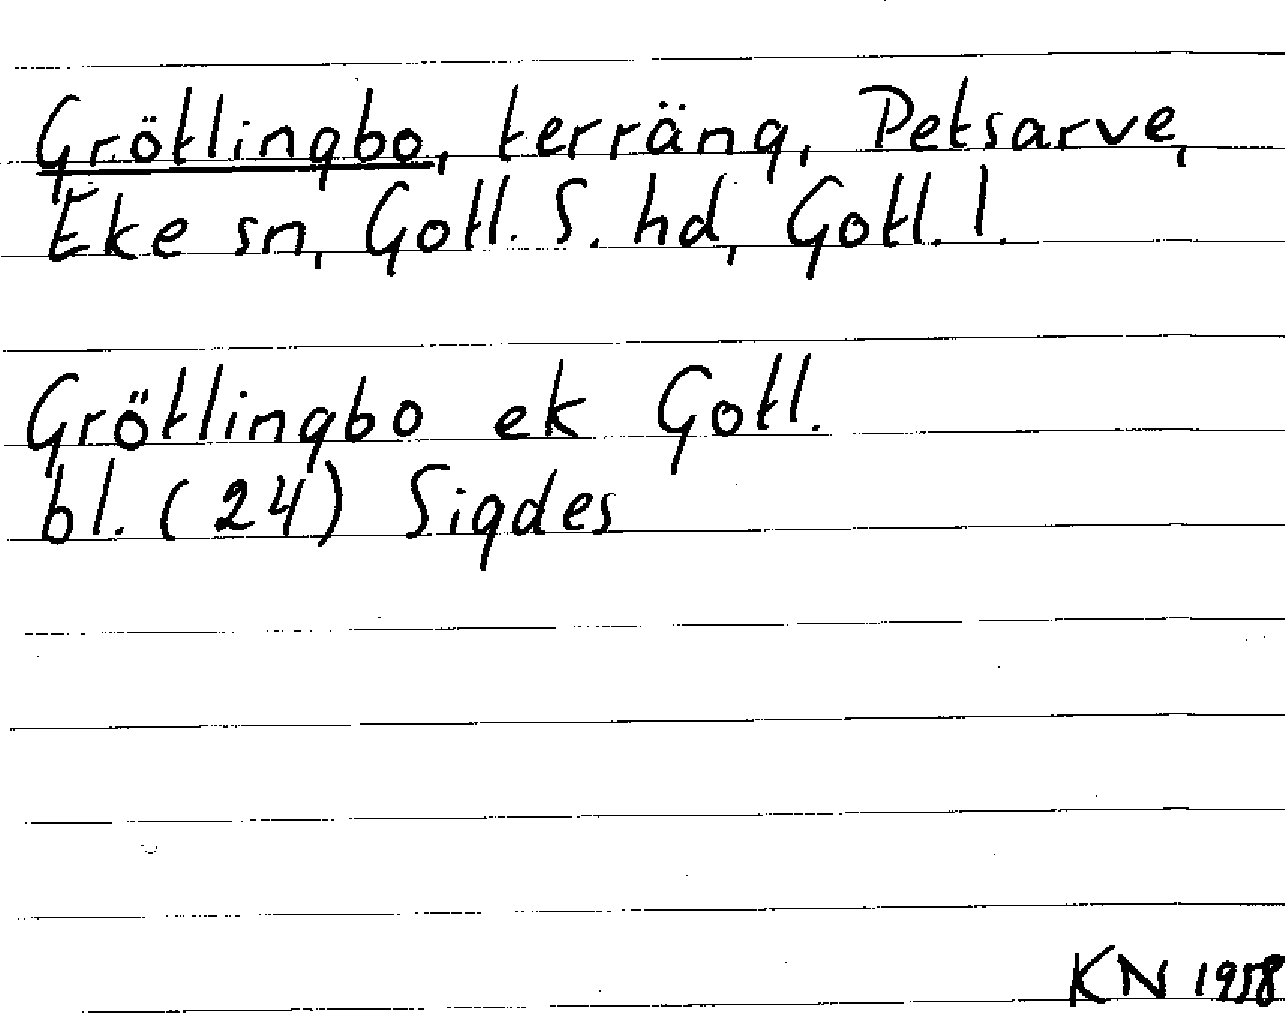 Grötlingbo, terräng, Petsarve,
Eke sn, Gotl. S. hd, Gotl. l.
Grötlingbo ek Gotl.
bl. (24) Sigdes
KN 1958